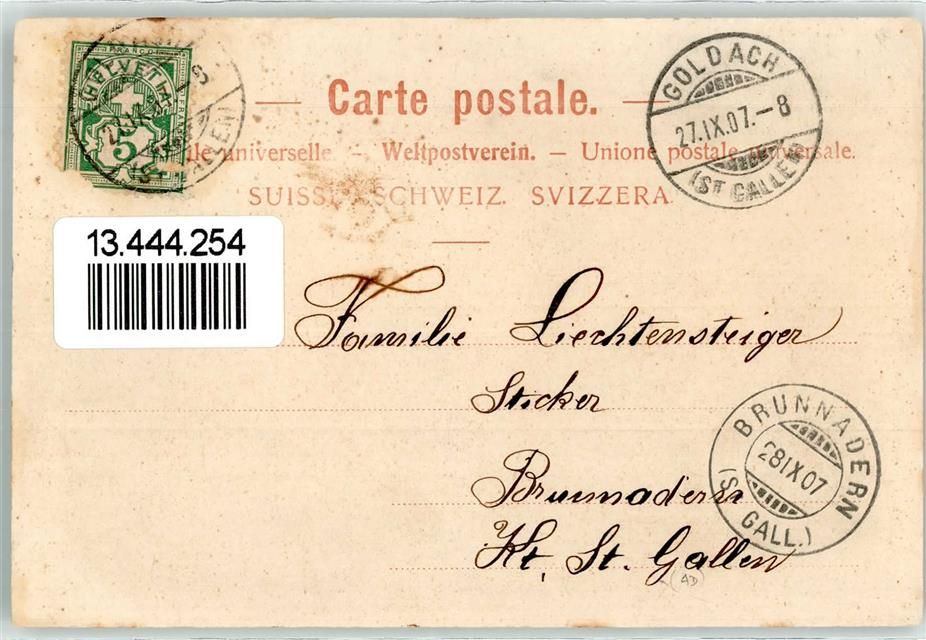 FRANCO
HELVETIA
5
GOLDACH
27.IX.07.-8
(ST GALLEN)
Carte postale.
universelle. — Weltpostverein. — Unione postale universale.
SUISSE. SCHWEIZ. SVIZZERA.
13.444.254
Familie Liechtensteiger
Sticker
Brunnadern
Kt. St. Gallen
BRUNNADERN
28IX07
(ST GALL.)
AD